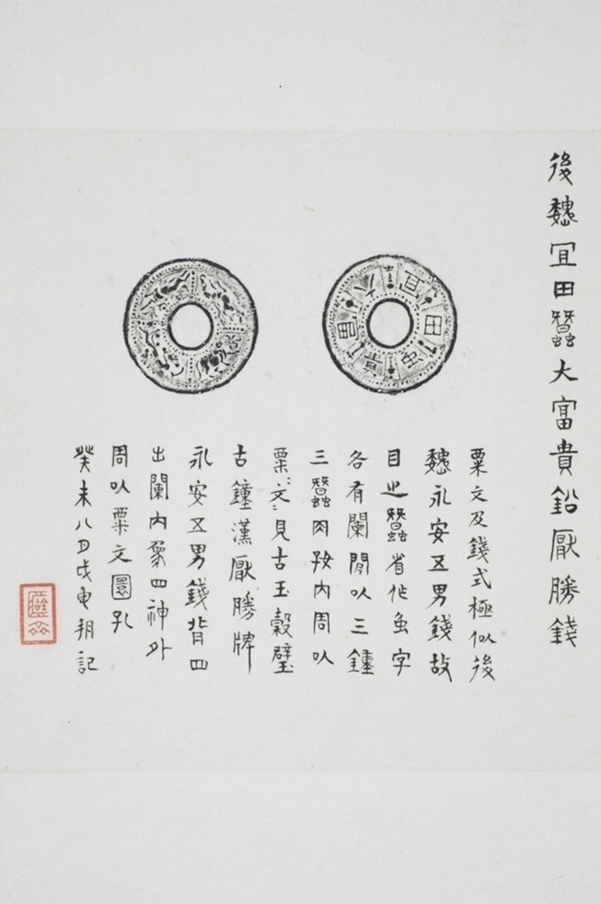 後魏冝田蠶大富貴鉛厭勝錢
冝田虫大富貴
粟文及錢式極似後
魏永安五男錢故
目之蠶省作虫字
各有闌閒㠯三鍾
三蠶肉好内周㠯
粟〻文〻見古玉穀璧
古鐘漢厭勝牌
永安五男錢背四
出闌内象四神外
周㠯粟文圜孔
癸未八月戊申朔記